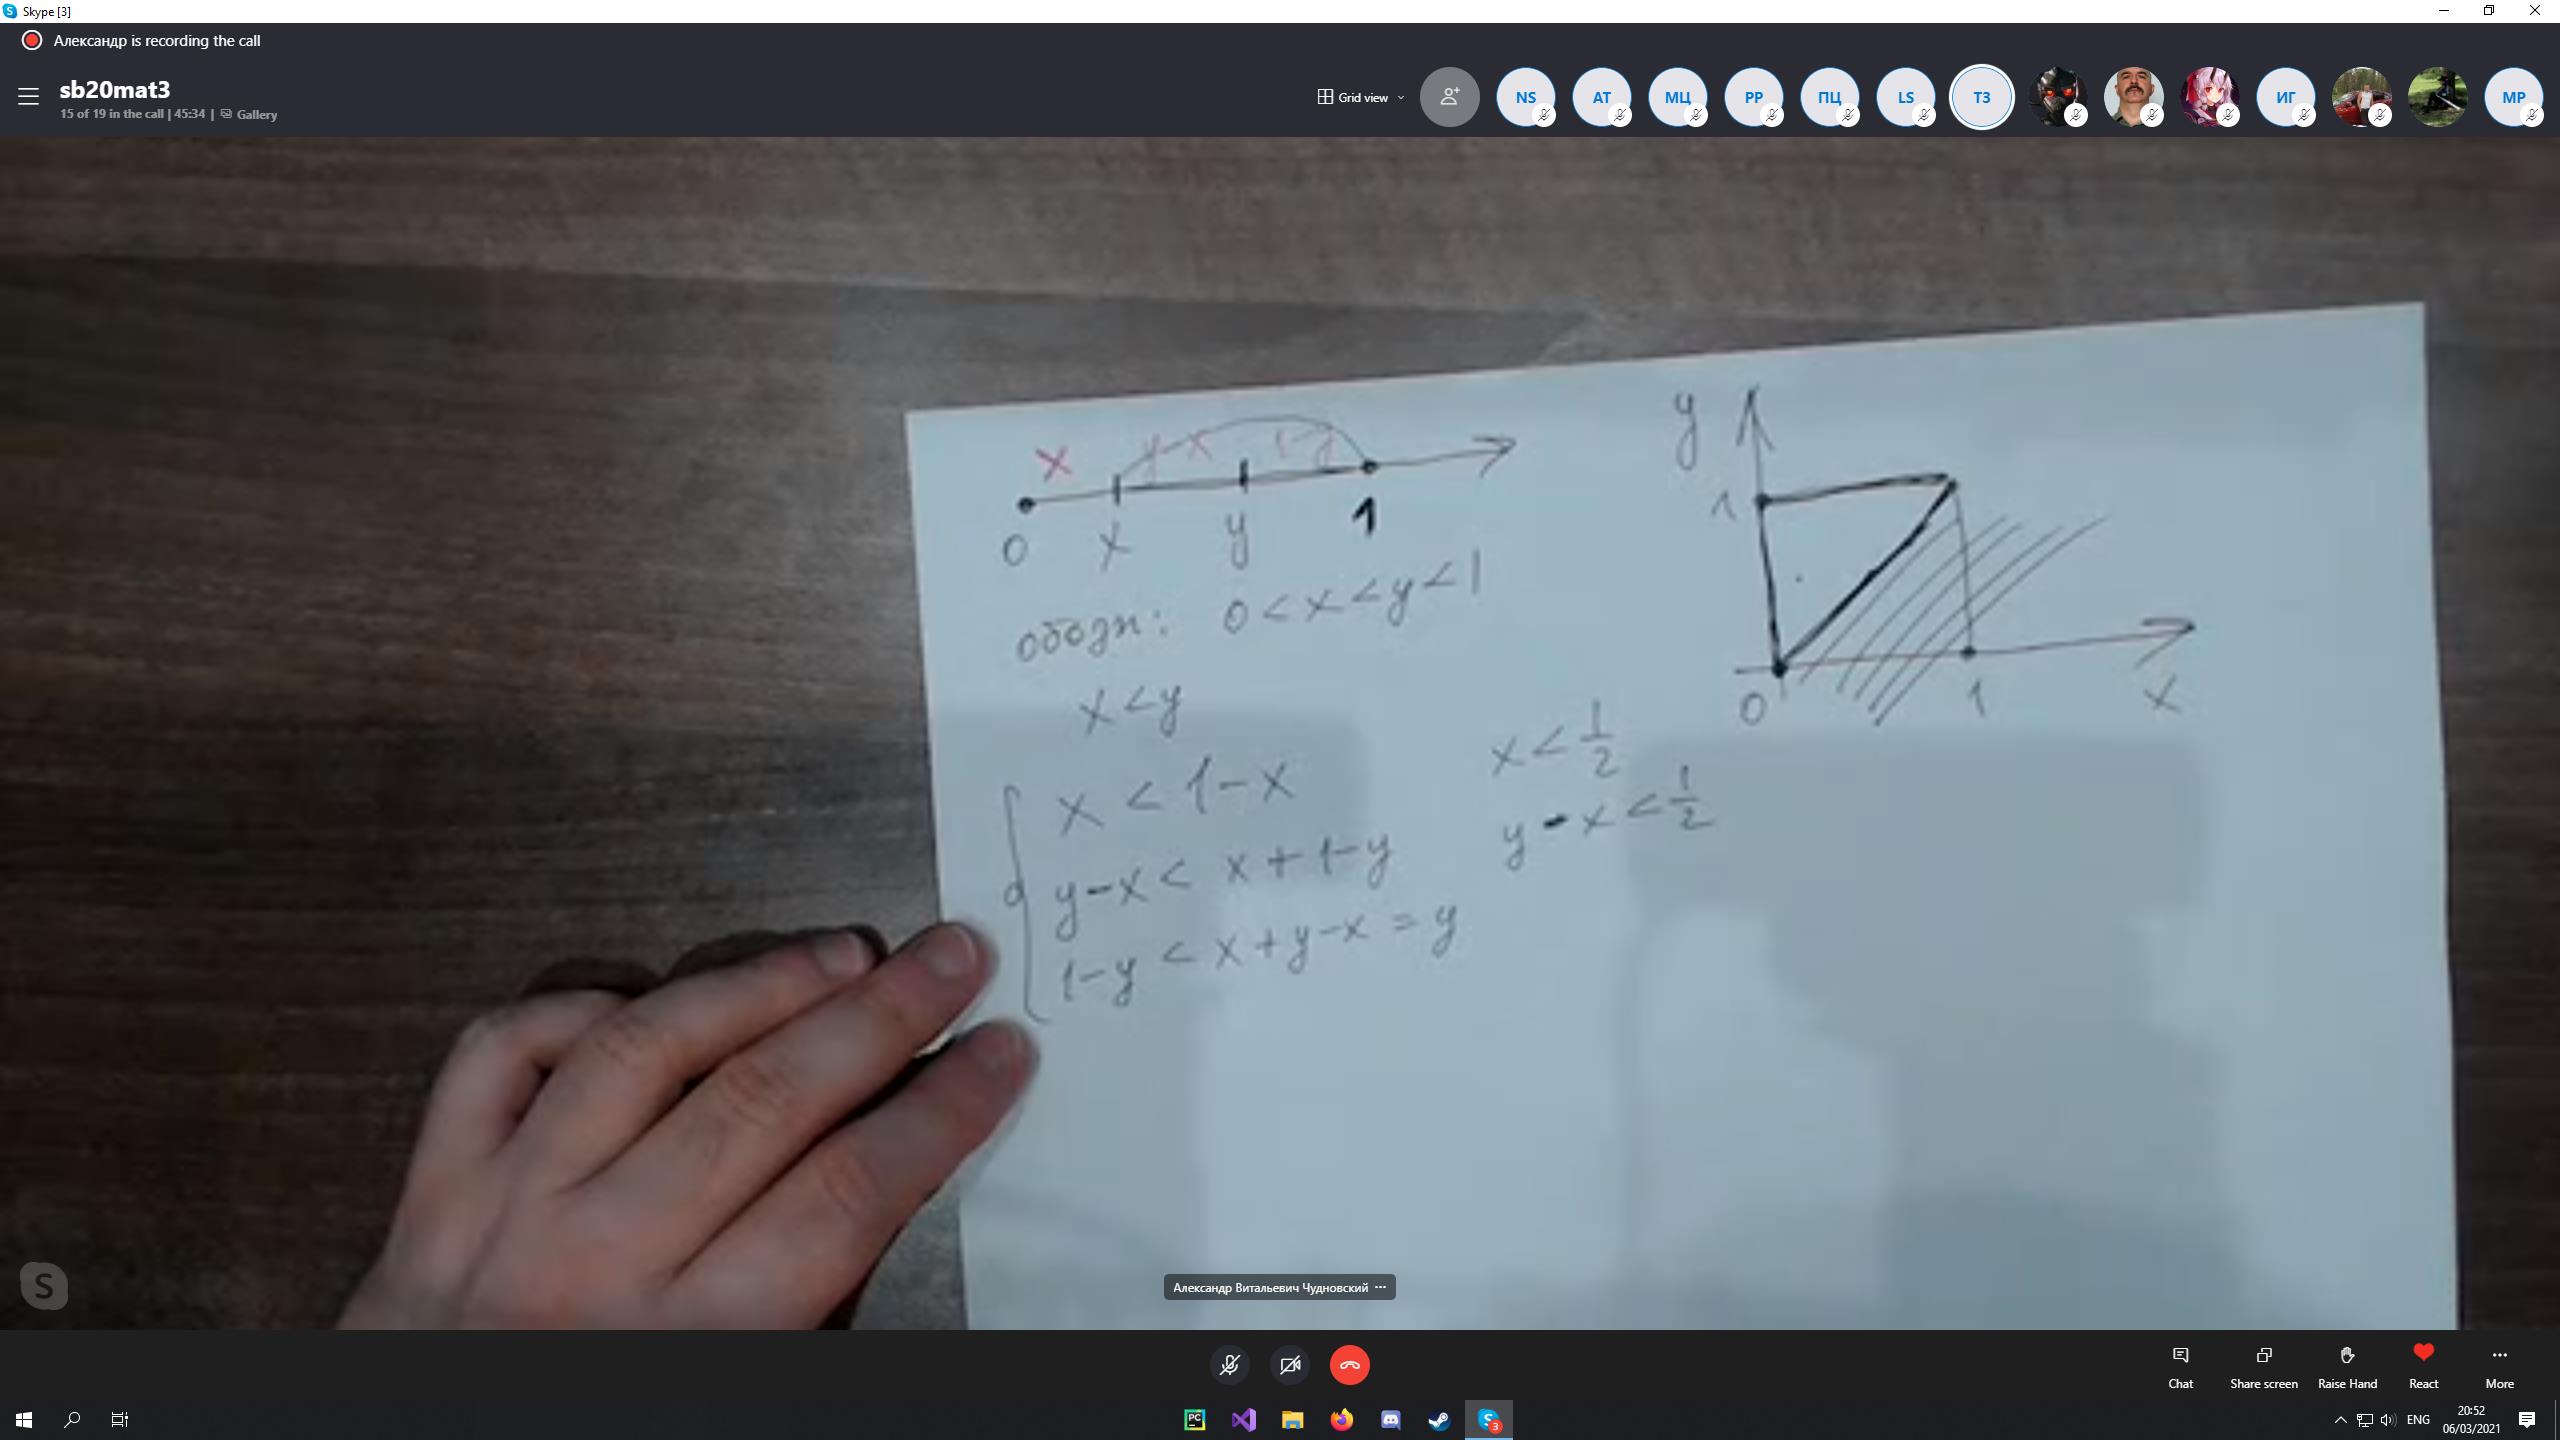 Skype [3]
Александр is recording the call
sb20mat3
15 of 19 in the call | 45:34 | Gallery
Grid view
NS AT МЦ PP ПЦ LS ТЗ ИГ MP
x y-x 1-y
0 x y 1
обозн: 0 < x < y < 1
x < y
x < 1-x
y-x < x+1-y
1-y < x+y-x = y
x < 1/2
y-x < 1/2
y
1
0 1 x
Александр Витальевич Чудновский ...
Chat Share screen Raise Hand React More
PC
S 3
ENG
20:52
06/03/2021